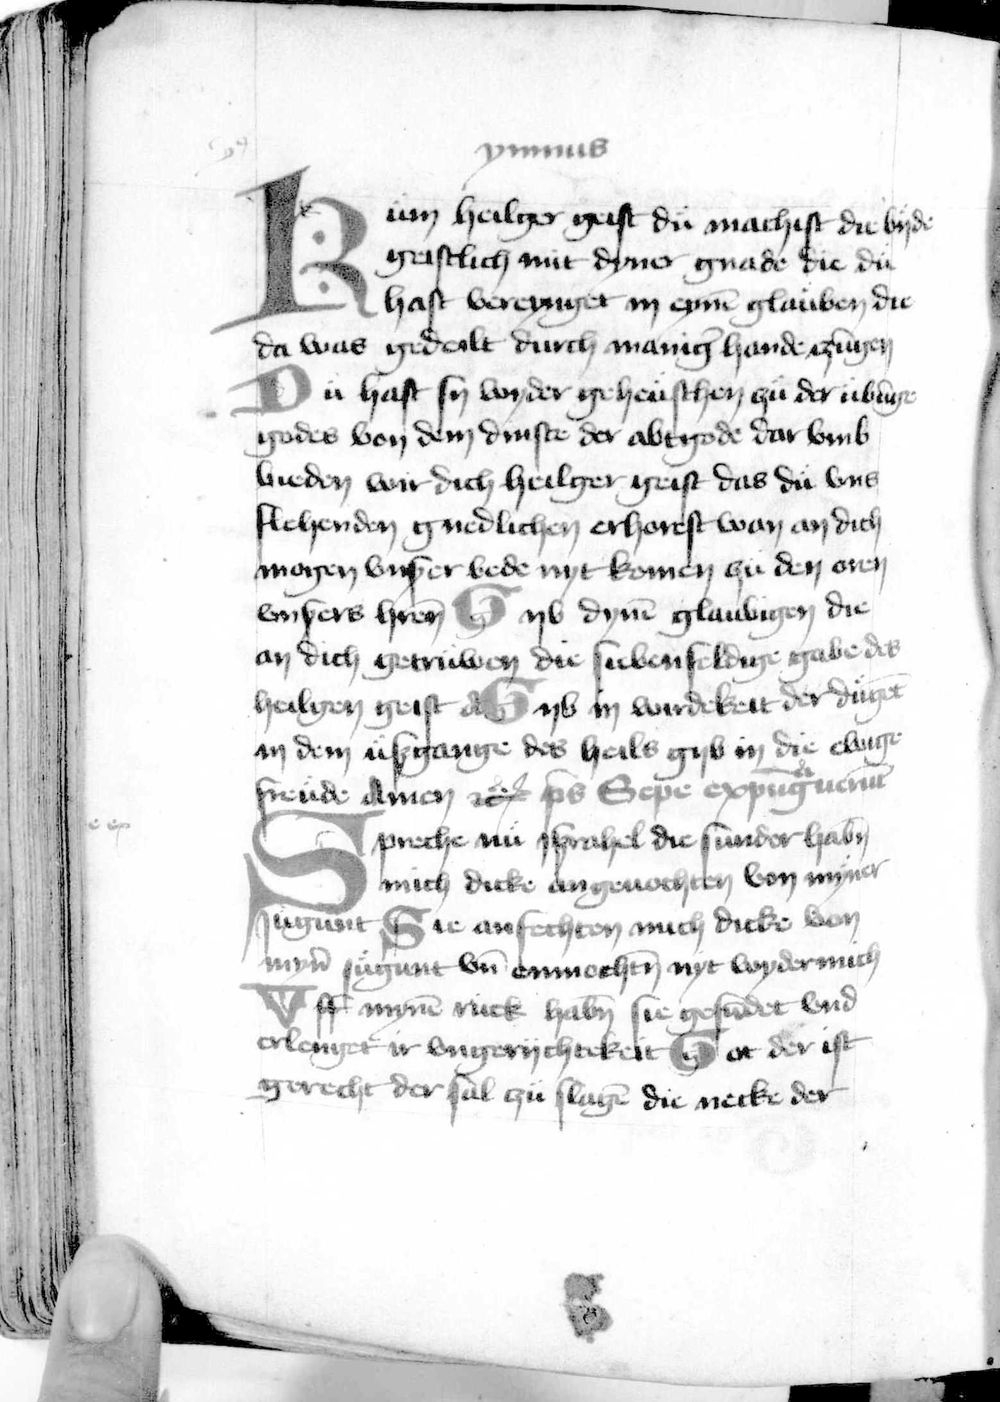 ymnus
Küm heilger geist dü machist die bijde
geistlich mit dyner gnade die dü
hast vereynget in eynē glaüben die
da was gedeilt durch maniḡ hande zūgen
Dü hast sy wyder geheüschen zü der übūge
godes von dem dinste der abtgode dar vmb
bieden wir dich heilger geist das dü vns
flehenden gnedlichen erhorest wan an dich
mogen vnßer bede nyt komen zü den oren
vnßers hreñ Gyb dynē glaubigen die
an dich getrüwen die siebenfeldige gabe des
heilgen geist A Gyb in wirdekeit der dügēt
in dem üßgange des heils gyb in die ewige
freüde Amen ps Sepe expūguerūt
Spreche nü jsrahel die sünder habñ
mich dicke angeuochten von myner
jügunt Sie anfechten mich dicke von
mynr̄ jügunt vn̄ enmochtñ nyt wydermich
Vff mynē rück habñ sie gesmedet vnd
erlenget ir vngerijchtekeit Got der ist
gerecht der sal zü slagē die necke der